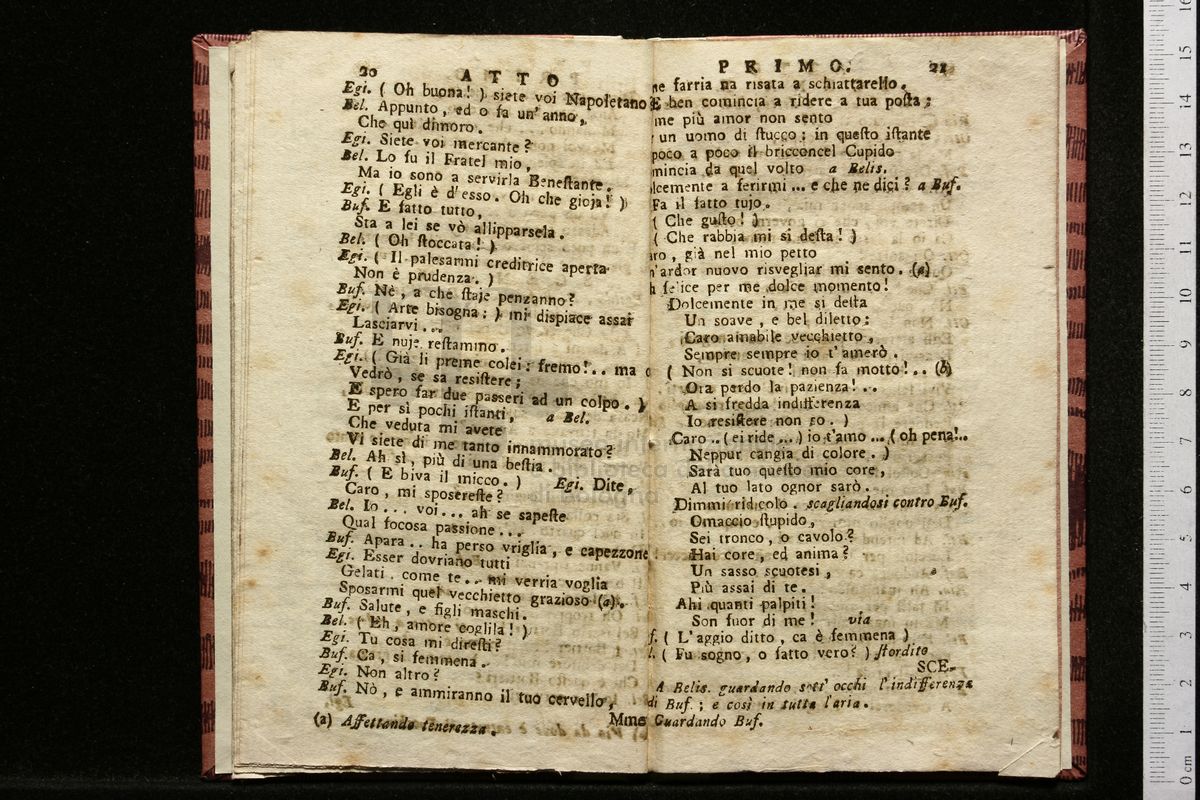 20 ATTO
Egi. ( Oh buona! ) siete voi Napoletano
Bel. Appunto, ed o fa un' anno,
Che quì dimoro.
Egi. Siete voi mercante?
Bel. Lo fu il Fratel mio,
Ma io sono a servirla Beneſtante.
Egi. ( Egli è d'esso. Oh che gioja! )
Buf. E fatto tutto,
Sta a lei se vò allipparsela.
Bel. ( Oh ſtoccata! )
Egi. ( Il palesarmi creditrice aperta
Non è prudenza. )
Buf. Nè, a che ſtaje penzanno?
Egi. ( Arte bisogna: ) mi dispiace assai
Lasciarvi...
Buf. E nuje reſtammo.
Egi. ( Già li preme colei: fremo!.. ma
Vedrò, se sa resiſtere;
E spero far due passeri ad un colpo. )
E per sì pochi iſtanti, a Bel.
Che veduta mi avete
Vi siete di me tanto innammorato?
Bel. Ah sì, più di una beſtia.
Buf. ( E biva il micco. ) Egi. Dite,
Caro, mi sposereſte?
Bel. Io... voi... ah se sapeſte
Qual focosa passione...
Buf. Apara.. ha perso vriglia, e capezzone
Egi. Esser dovriano tutti
Gelati come te... mi verria voglia
Sposarmi quel vecchietto grazioso (a).
Buf. Salute, e figli maschi.
Bel. ( Eh, amore coglila! )
Egi. Tu cosa mi direſti?
Buf. Ca, si femmena.
Egi. Non altro?
Buf. Nò, e ammiranno il tuo cervello,
(a) Affettando tenerezza. Mme
PRIMO. 21
ne farria na risata a schiattarello.
E ben comincia a ridere a tua poſta;
me più amor non sento
un uomo di ſtucco: in queſto iſtante
poco a poco il bricconcel Cupido
mincia da quel volto a Belis.
lcemente a ferirmi... e che ne dici? a Buf.
Fa il fatto tujo.
( Che guſto! )
( Che rabbia mi si deſta! )
aro, già nel mio petto
n'ardor nuovo risvegliar mi sento. (a)
h felice per me dolce momento!
Dolcemente in me si deſta
Un soave, e bel diletto:
Caro amabile vecchietto,
Sempre sempre io t'amerò.
( Non si scuote! non fa motto!.. (b)
Ora perdo la pazienza!..
A si fredda indifferenza
Io resiſtere non so. )
Caro.. ( ei ride...) io t'amo... ( oh pena!..
Neppur cangia di colore. )
Sarà tuo queſto mio core,
Al tuo lato ognor sarò.
Dimmi ridicolo. scagliandosi contro Buf.
Omaccio ſtupido,
Sei tronco, o cavolo?
Hai core, ed anima?
Un sasso scuotesi,
Più assai di te.
Ahi quanti palpiti!
Son fuor di me! via
f. ( L'aggio ditto, ca è femmena )
l. ( Fu sogno, o fatto vero? ) ſtordito
SCE-
A Belis. guardando sott' occhi l'indifferenza
di Buf.; e così in tutta l'aria.
Guardando Buf.